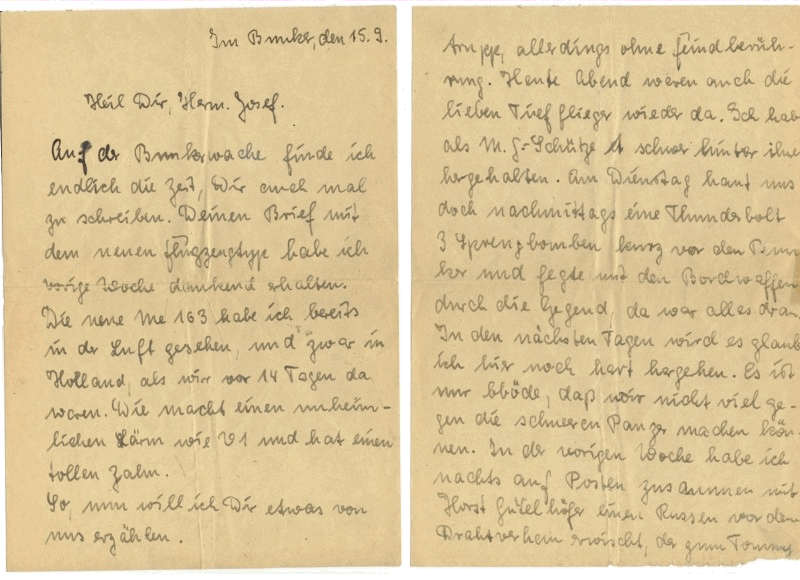 Im Bunker, den 15.9.
Heil Dir, Herm. Josef.
Auf der Bunkerwache finde ich
endlich die Zeit, Dir auch mal
zu schreiben. Deinen Brief mit
dem neuen Flugzeugtype habe ich
vorige Woche dankend erhalten.
Die neue Me 163 habe ich bereits
in der Luft gesehen, und zwar in
Holland, als wir vor 14 Tagen da
waren. Die macht einen unheim-
lichen Lärm wie V1 und hat einen
tollen Zahn.
So, nun will ich Dir etwas von
uns erzählen.
truppe, allerdings ohne Feindberüh-
rung. Heute Abend waren auch die
lieben Tiefflieger wieder da. Ich hab
als M.G-Schütze schwer hinter ihnen
hergehalten. Am Dienstag haut uns
doch nachmittags eine Thunderbolt
3 Sprengbomben kurz vor den Bun-
ker und fegte mit den Bordwaffen
durch die Gegend, da war alles dran.
In den nächsten Tagen wird es glaub
ich hier noch hart hergehen. Es ist
nur blöde, daß wir nicht viel ge-
gen die schweren Panzer machen kön-
nen. In der vorigen Woche habe ich
nachts auf Posten zusammen mit
Horst einen Russen vor dem
Drahtverhau erwischt, der zum Tommy